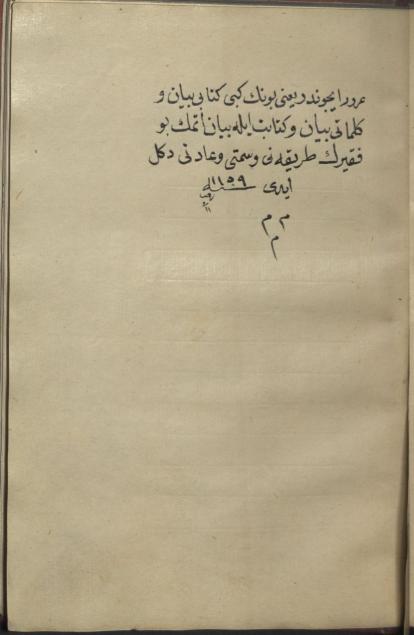 عرور ایچوندر یعنی بونك كبی كتابی بیان و
كلماتی بیان و كتابت ایله بیان اتمك بو
فقیرك طریقه نی وسمتی وعادتی دكل
ایدی سنه ١١٥٩
م م
م